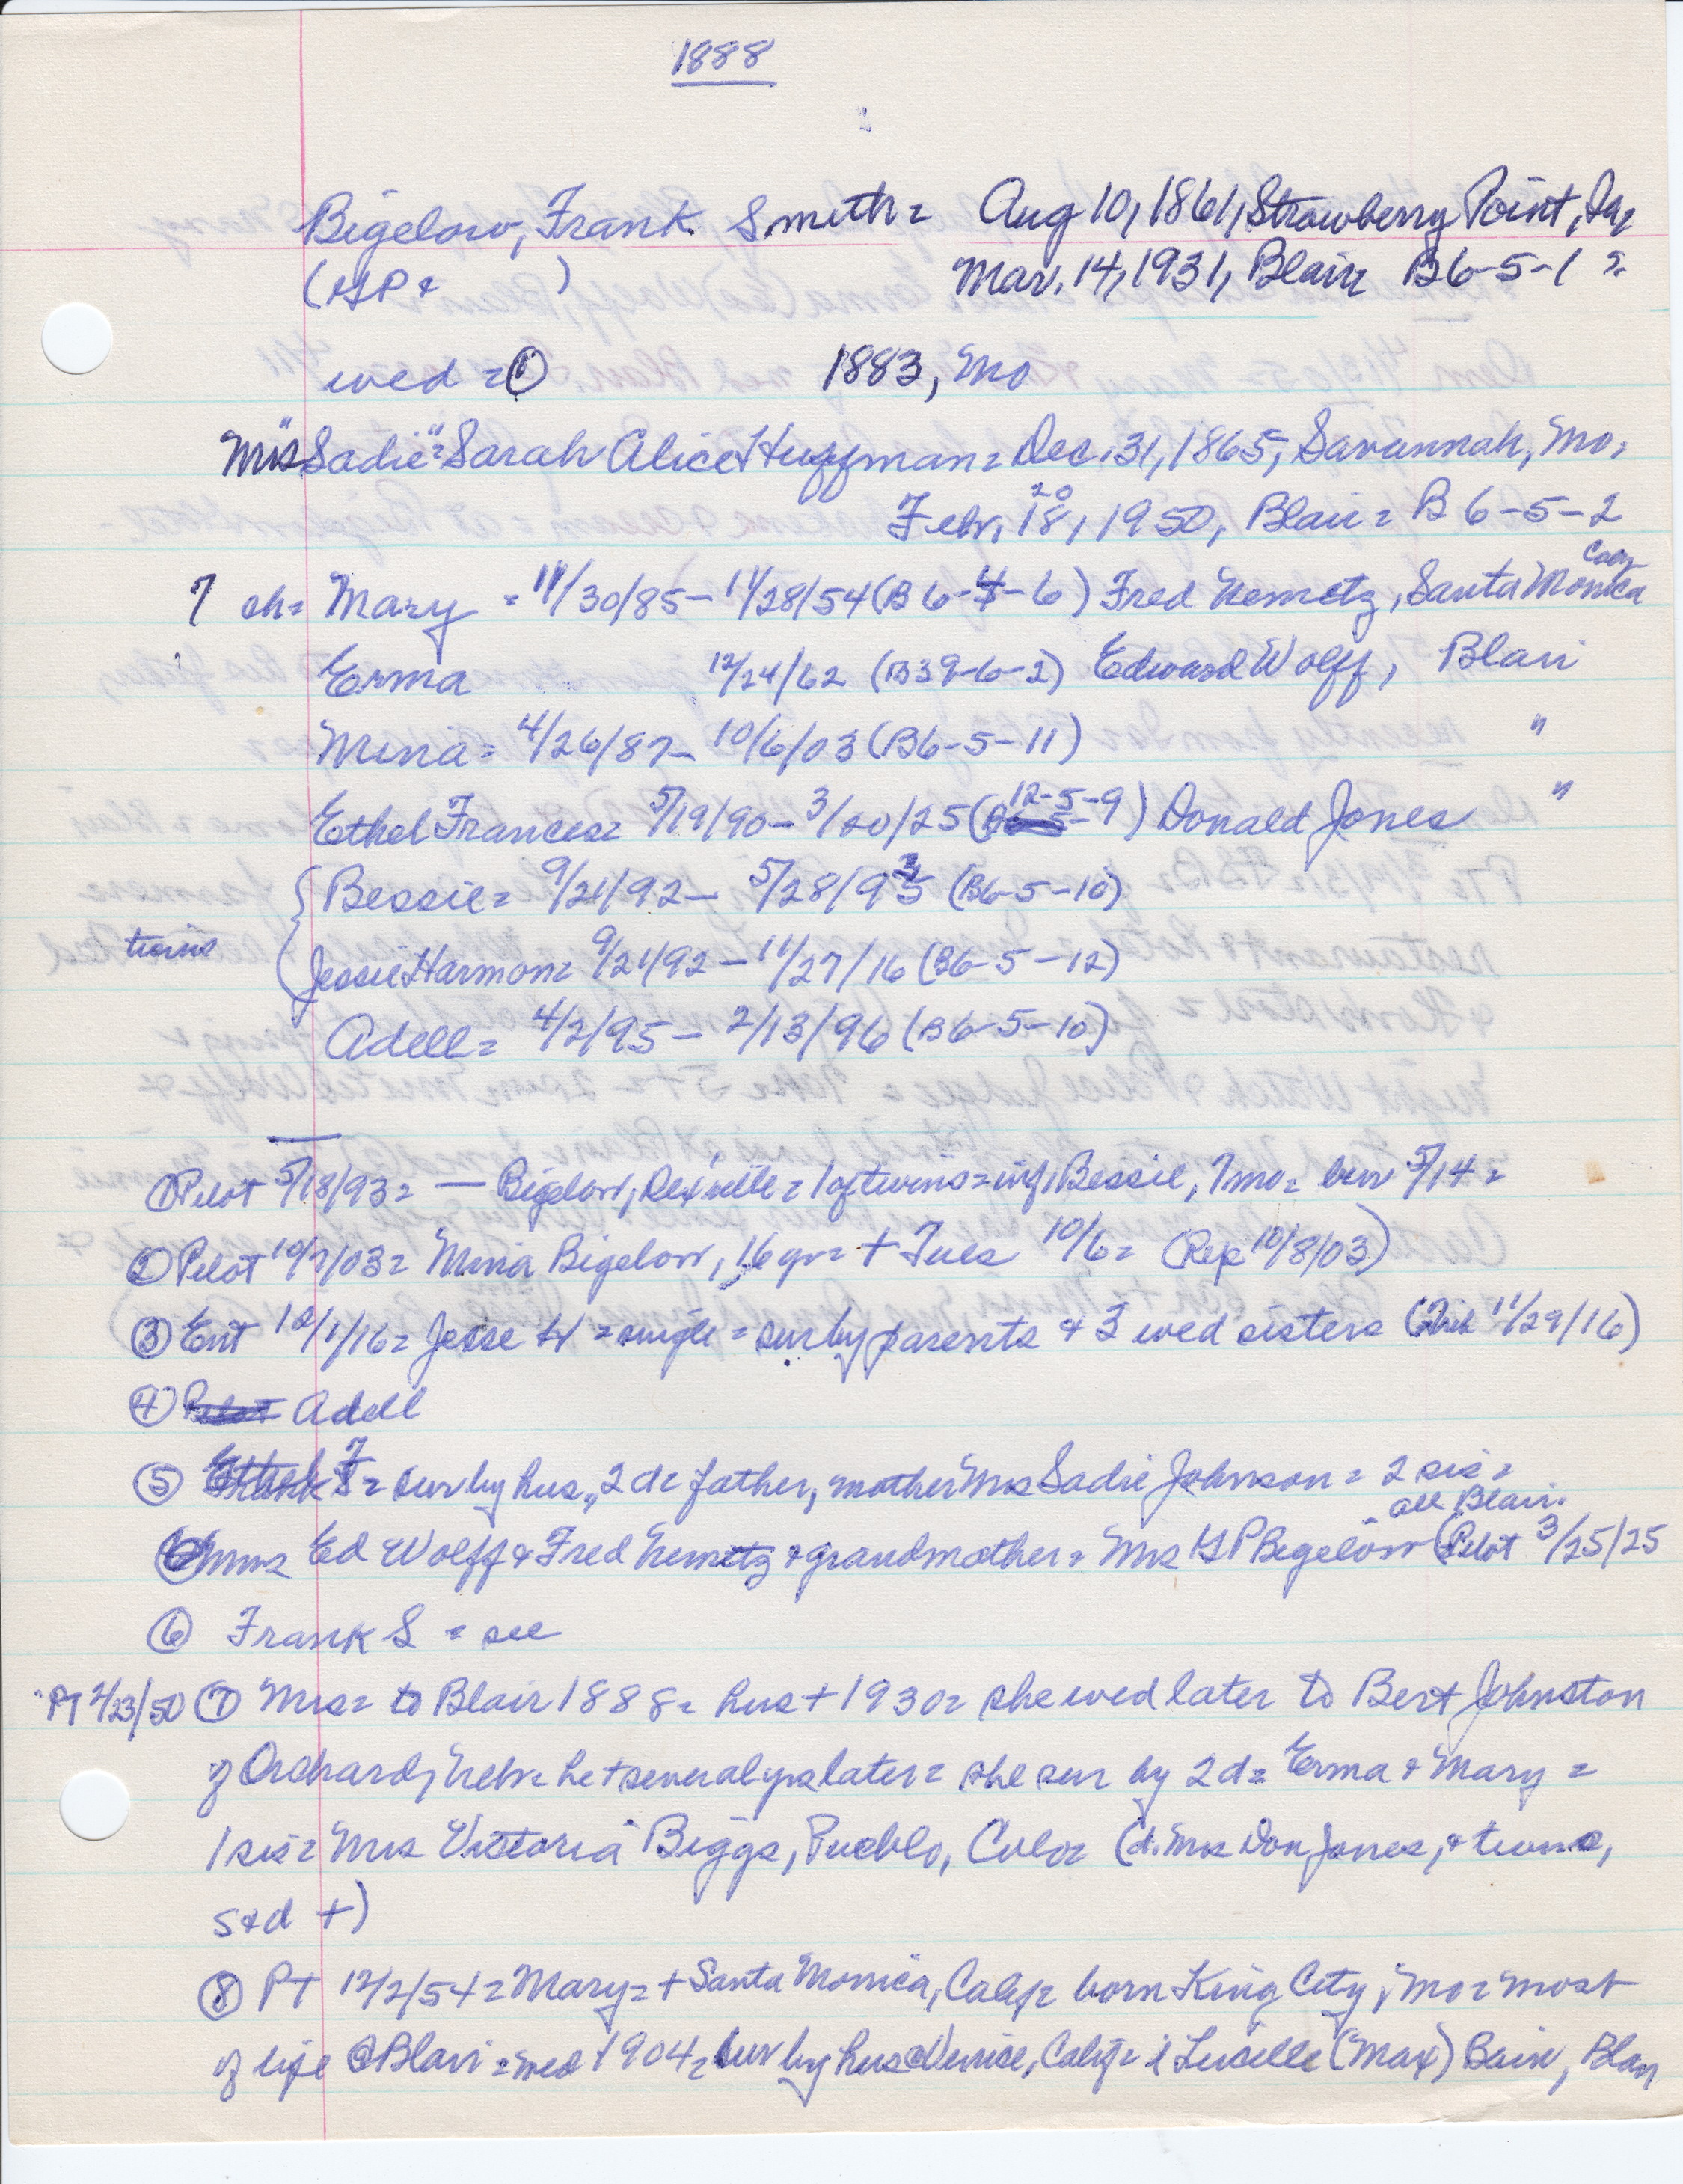 1888
Bigelow, Frank Smith = Aug 10, 1861, Strawberry Point, Ia,
(HP & ) Mar. 14, 1931, Blair B6-5-1
wed = ① 1883, Mo
Mrs "Sadie" = Sarah Alice Huffman = Dec. 31, 1865, Savannah, Mo,
20
Febr, 18, 1950, Blair = B 6-5-2
7 ch = Mary = 11/30/85 - 11/28/54 (B 6-4-6) Fred Nemetz, Santa Monica
Erma 12/24/62 (B39-6-2) Edward Wolff, Blair
Mina = 4/26/87 - 10/6/03 (B6-5-11) "
Ethel Frances = 5/19/90 - 3/20/25 (12-5-9) Donald Jones "
Bessie = 9/21/92 - 5/28/93 (B6-5-10)
twins
Jessie Harmon = 9/21/92 - 11/27/16 (B6-5-12)
Adell = 4/2/95 - 2/13/96 (B6-5-10)
① Pilot 5/18/93 = — Bigelow, = 1 of twins = inf, Bessie, 7 mo = bur 5/14 =
② Pilot 10/7/03 = Mina Bigelow, 16 yr = + Tues 10/6 = (Rep 10/8/03)
③ Ent 12/1/16 = Jesse H = single = sur by parents & 3 wed sisters ( 11/29/16)
④ Pilot Adell
⑤ Ethel F = sur by hus, 2 d = father, mother Mrs Sadie Johnson = 2 sis =
all Blair.
Mrs Ed Wolff & Fred Nemetz & grandmother = Mrs HP Bigelow (Pilot 3/25/25
⑥ Frank S = see
PT 2/23/50 ⑦ Mrs = to Blair 1888 = hus + 1930 = she wed later to Bert Johnston
of Orchard, Nebr = he + several yrs later = she sur by 2 d = Erma & Mary =
1 sis = Mrs Victoria Biggs, Pueblo, Colo = (d. Mrs Don Jones, & twins,
s & d +)
⑧ PT 12/2/54 = Mary = + Santa Monica, Calif = born King City, Mo = most
of life @ Blair = wed 1904 = sur by hus @ Venice, Calif = & Lucille (Max) Bain, Blair